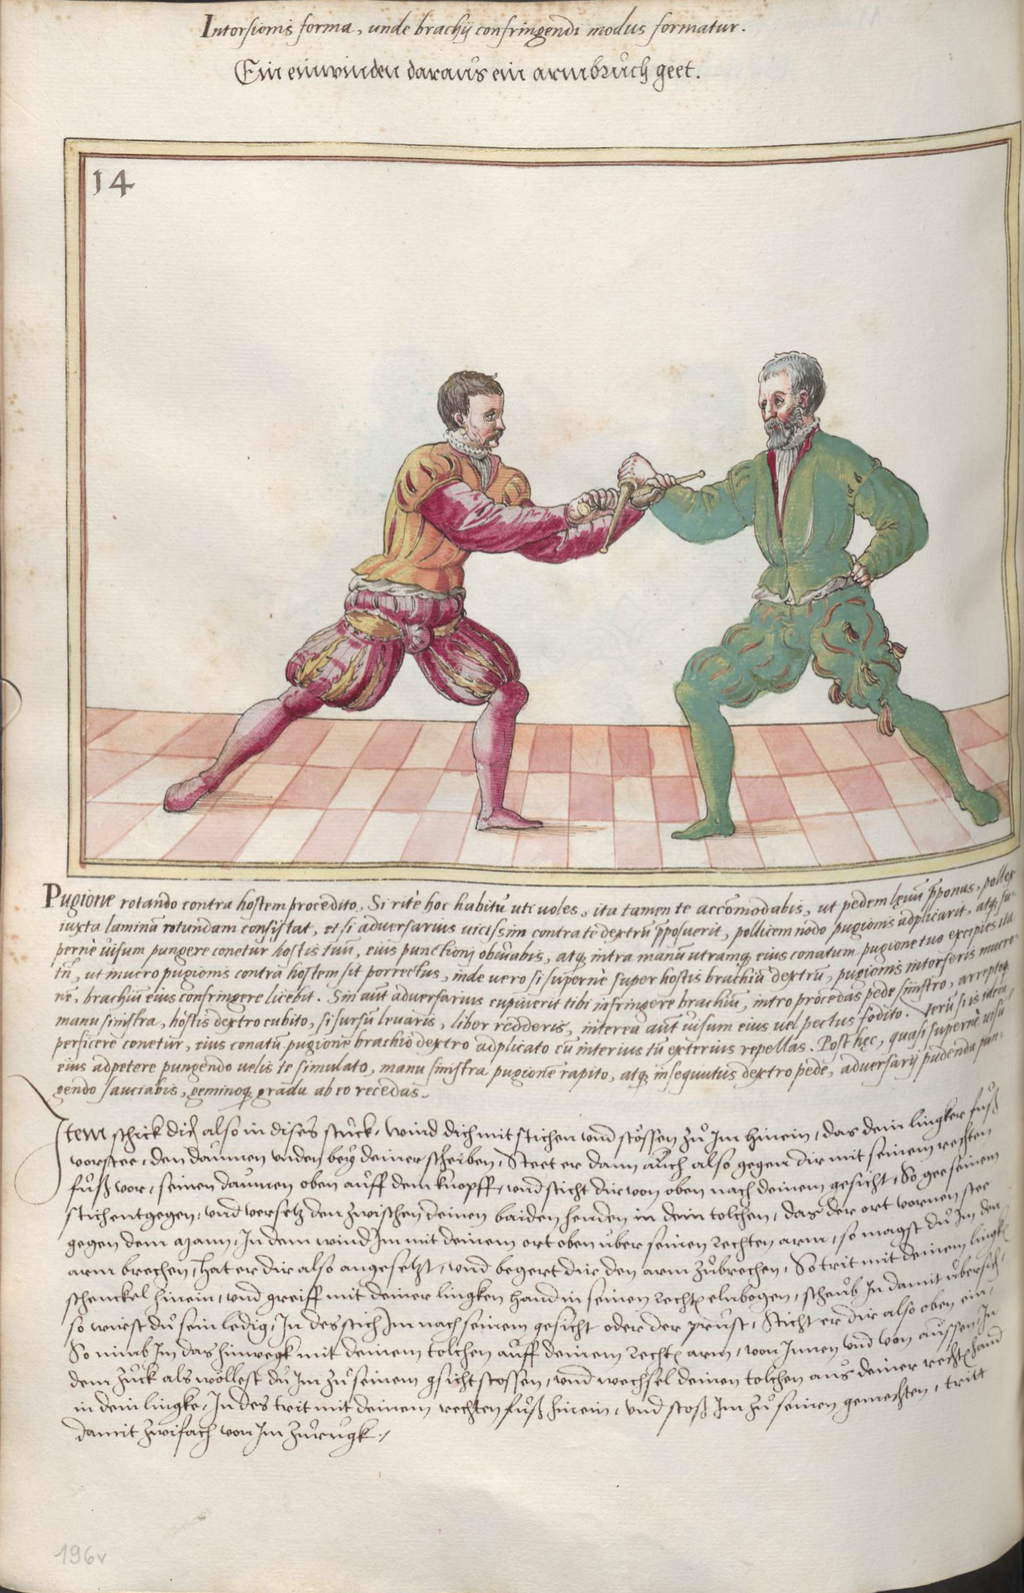 Intorsionis forma, unde brachij confringendi modus formatur.
Ein einwinden daraus ein armbruch geet.
14
Pugione rotando contra hostem procedito, Si rite hoc habitu uti voles, ita tamen te accomodabis, ut pedem levu pponas, pollex
iuxta lamina rotundam consistat, et si adversarius vicissim contra te dextru pposuerit, pollicem nodo pugionis adplicarit, atq su-
perne visum pungere conetur hostis tuus, eius punctioni obviabis, atq intra manu utramq eius conatum pugione tuo excipies ita
tn, ut mucro pugionis contra hostem sit porrectus, inde vero si superne super hostis brachiu dextru, pugionis intorseris mucro-
ne, brachiu eius confringere licebit. Sin aut adversarius cupiverit tibi infringere brachiu, intro procedas pede sinistro, arrepto
manu sinistra, hostis dextro cubito, si sursu levaris, liber redderis, interea aut visum eius vel pectus fodito. Iteru si is idem
perficere conetur, eius conatu pugione brachio dextro adplicato cu interius tu exterius repellas. Post hec, quasi superne visu
eius adpetere pungendo velis te simulato, manu sinistra pugione rapito, atq insequutus dextro pede, adversarij pudenda pun-
gendo sauciabis, geminoq gradu ab eo recedas.
Item schick dich also in dises stuck, wind dich mit stichen und stössen zu Im hinein, das dein lingker fuß
vorstee, den daumen unden bey deiner scheiben, Steet er dann auch also gegen dir mit seinem rechten
fuß vor, seinen daumen oben auff dem knopff, und sticht dir von oben nach deinem gesicht, So gee seinem
stich entgegen, und versetz den zwischen deinen baiden henden in dein tolchen, das der ort vornen stee
gegen dem mann, In dem wind Im mit deinem ort oben uber seinen rechten arm, so magst du Im den
arm brechen, hat er dir also angesetzt, und begert dir den arm zubrechen, So trit mit deinem lingken
schenckel hinein, und greiff mit deiner lingken hand in seinen recht elnbogen, scheub In damit ubersich,
so wirst du sein ledig, In des stich Im nach seinem gesicht oder der prust, Sticht er dir also oben ein,
So nimb Im das hinwegk mit deinem tolchen auff deinem recht arm, von Innen und von aussen, In
dem zuck als wöllest du Im zu seinem gsicht stossen, und wechsel deinen tolchen aus deiner recht hand
in dein lingke, In des trit mit deinem rechten fuß hinein, und stoß Im zu seinen gemechten, tritt
damit zwifach von Im zurugk.
196v